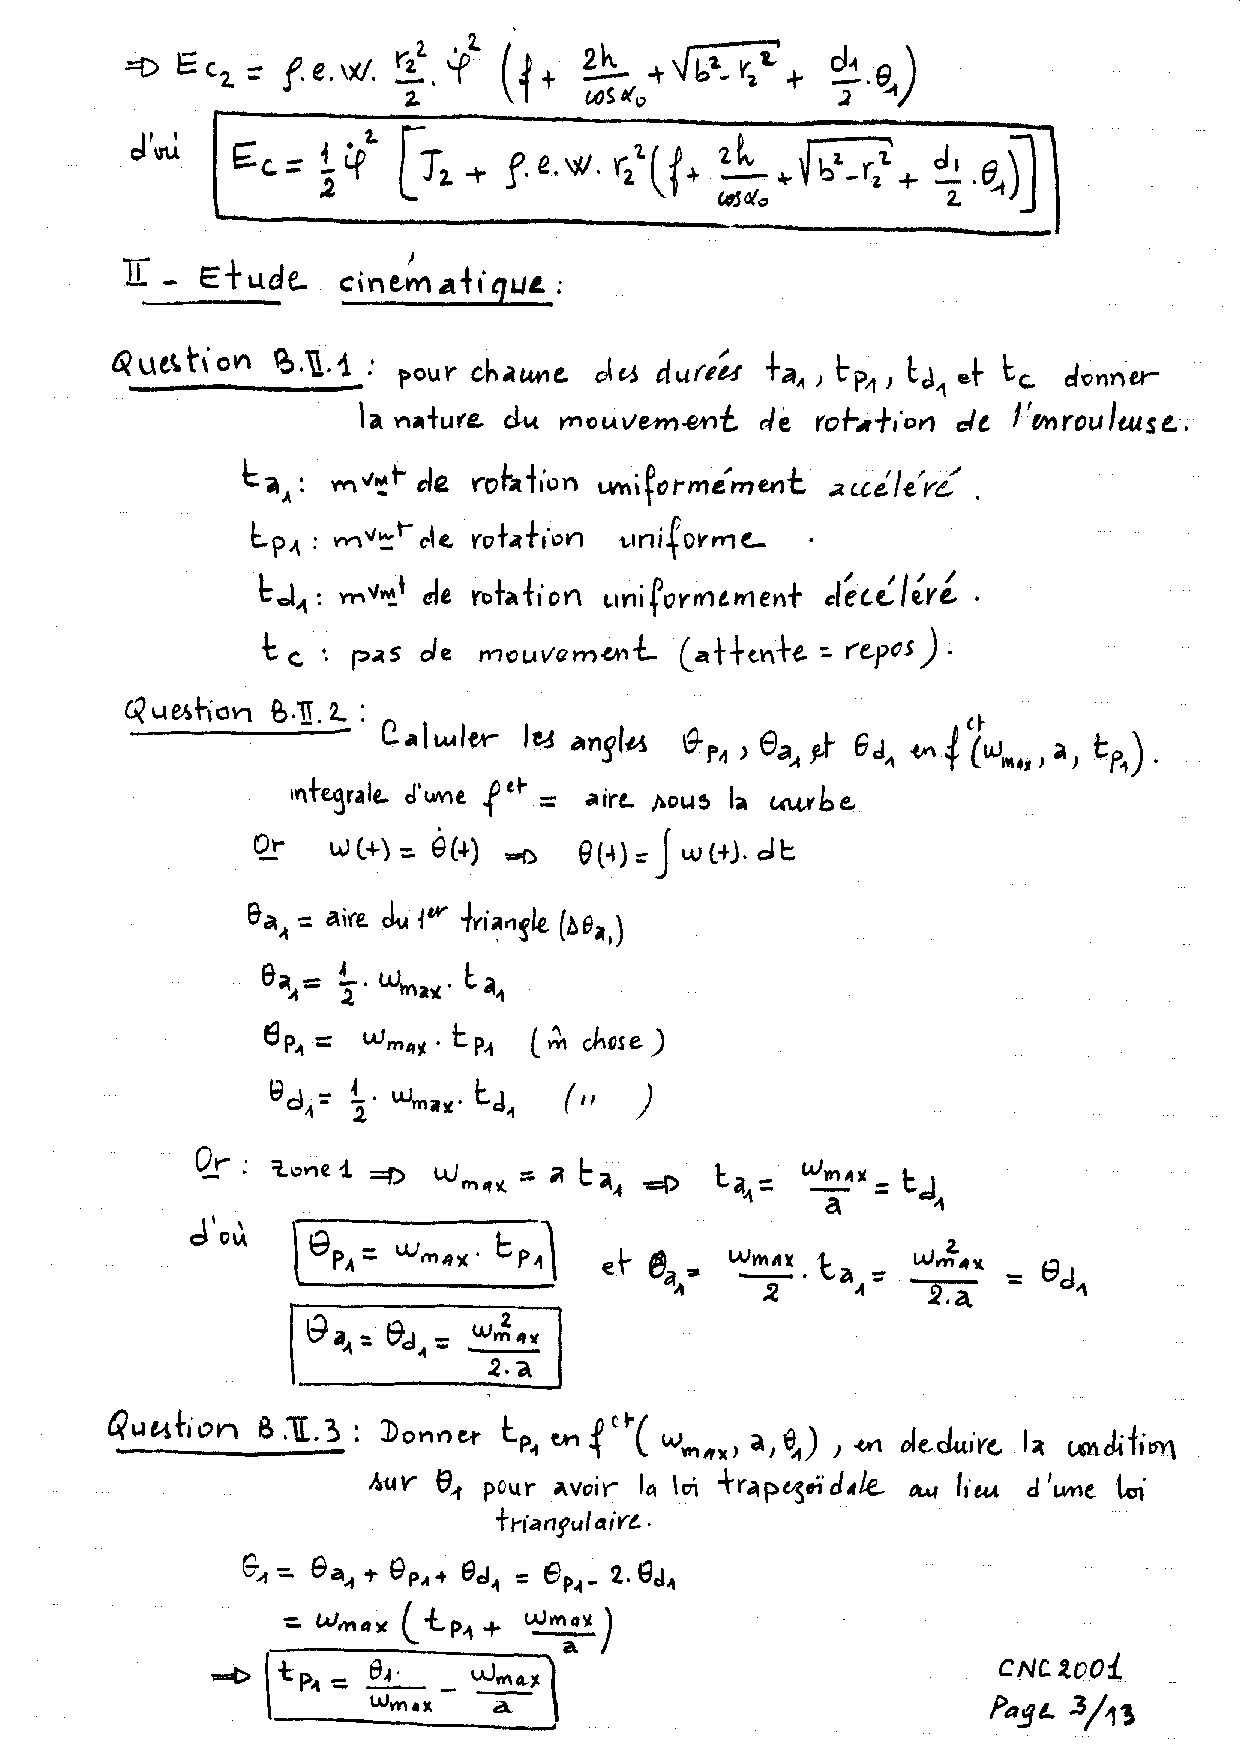 ⇒ Ec₂ = ρ.e.w. r₂²/2 . φ̇² (f + 2h/cosα₀ + √(b²-r₂²) + d₁/2 .θ₁)
d'où Ec = 1/2 φ̇² [J₂ + ρ.e.w. r₂² (f + 2h/cosα₀ + √(b²-r₂²) + d₁/2 .θ₁)]
II - Etude cinématique :
Question B.II.1 : pour chaune des durées ta₁, tp₁, td₁ et tc donner
la nature du mouvement de rotation de l'enrouleuse.
ta₁ : mvmt de rotation uniformément accéléré .
tp₁ : mvmt de rotation uniforme .
td₁ : mvmt de rotation uniformement décéléré .
tc : pas de mouvement (attente = repos) .
Question B.II.2 : Calculer les angles θp₁, θa₁ et θd₁ en fct (wmax, a, tp₁) .
integrale d'une fct = aire sous la courbe
Or w(t) = θ̇(t) ⇒ θ(t) = ∫ w(t). dt
θa₁ = aire du 1er triangle (Δθa₁)
θa₁ = 1/2 . wmax . ta₁
θp₁ = wmax . tp₁ (m̂ chose )
θd₁ = 1/2 . wmax . td₁ ( " )
Or : zone 1 ⇒ wmax = a ta₁ ⇒ ta₁ = wmax/a = td₁
d'où θp₁ = wmax . tp₁ et θa₁ = wmax/2 . ta₁ = w²max/2.a = θd₁
θa₁ = θd₁ = w²max/2.a
Question B.II.3 : Donner tp₁ en fct (wmax, a, θ₁) , en deduire la condition
sur θ₁ pour avoir la loi trapezoïdale au lieu d'une loi
triangulaire.
θ₁ = θa₁ + θp₁ + θd₁ = θp₁ - 2.θd₁
= wmax (tp₁ + wmax/a)
⇒ tp₁ = θ₁/wmax - wmax/a
CNC 2001
Page 3/13